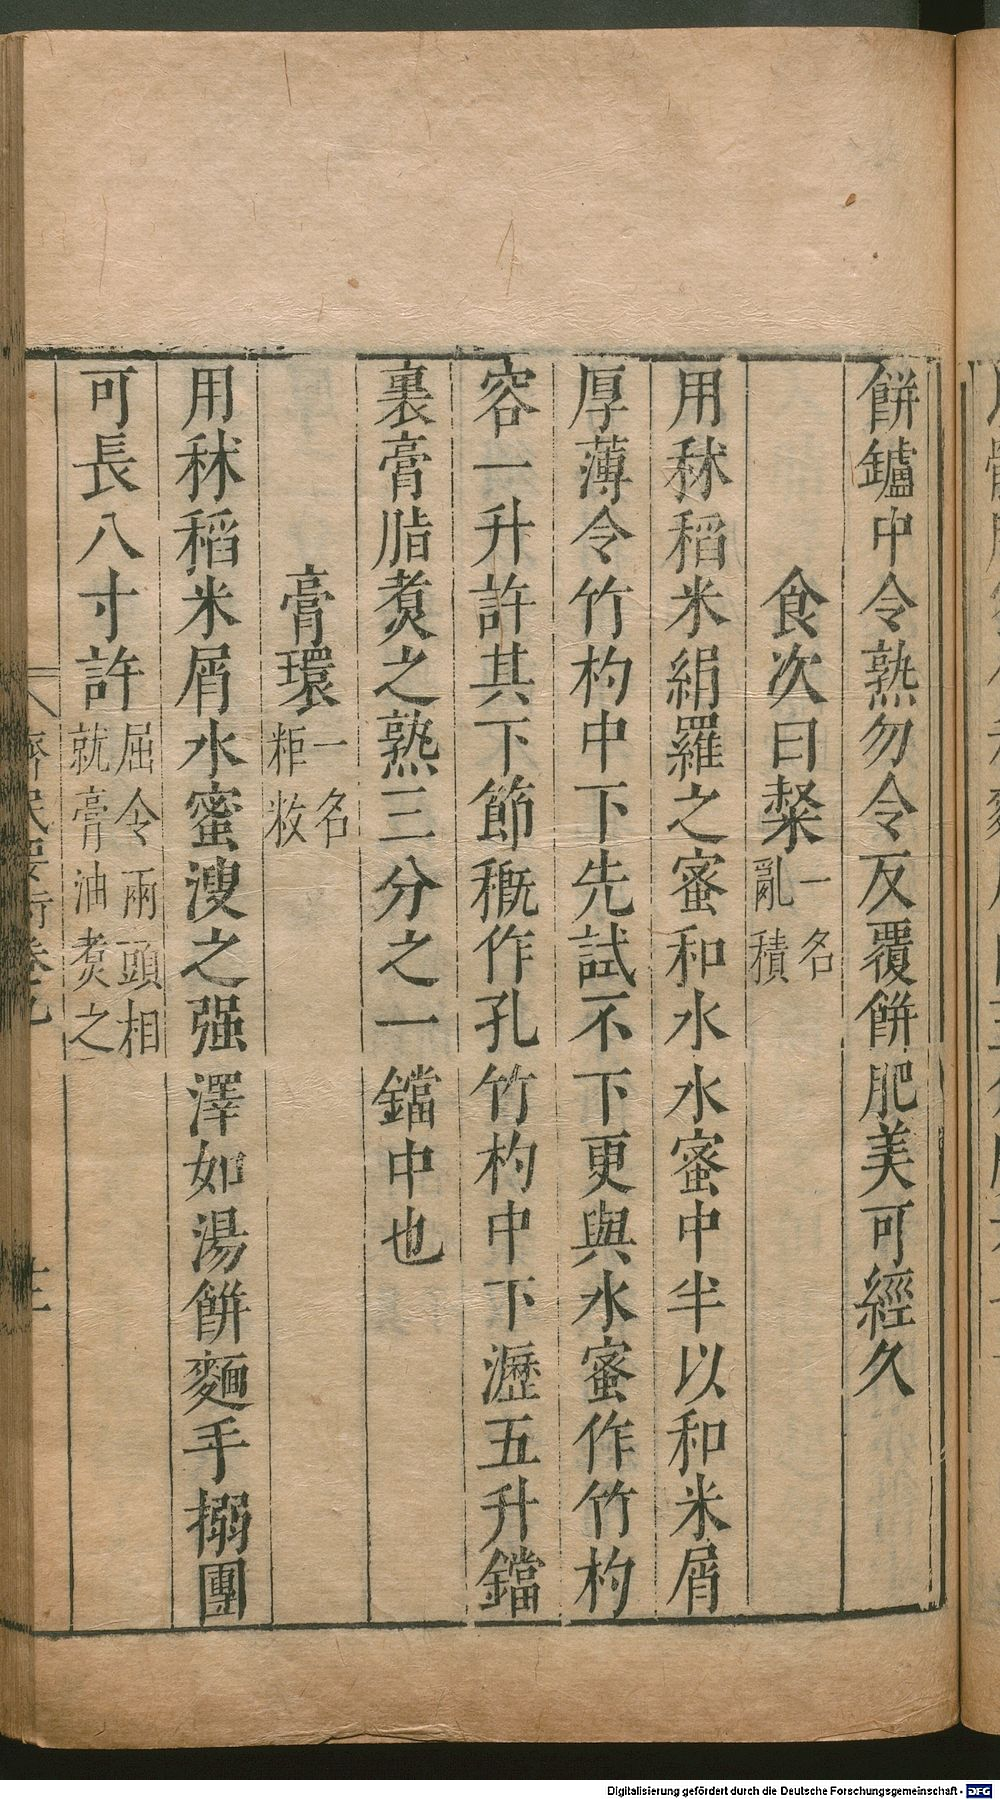 餅鑪中令熟勿令反覆餅肥美可經久
食次曰粲一名亂積
用秫稻米絹羅之蜜和水水蜜中半以和米屑
厚薄令竹杓中下先試不下更與水蜜作竹杓
容一升許其下節穊作孔竹杓中下瀝五升鐺
裏膏脂煑之熟三分之一鐺中也
膏環一名粔籹
用秫稻米屑水蜜溲之强澤如湯餅麵手搦團
可長八寸許屈令兩頭相就膏油煑之
齊民要術卷九
Digitalisierung gefördert durch die Deutsche Forschungsgemeinschaft - DFG